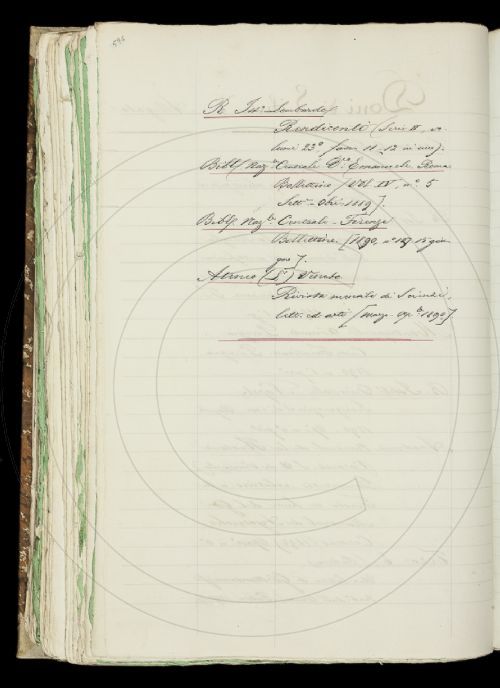 596
R. Ist.º Lombardo
Rendiconti (Serie II, vo
lume 23º fasc. 11-12 in cui).
Bibl. Naz.le Centrale V.º Emanuele Roma
Bollettino (Vol. IV, nº 5
Sett.-Ott. 1889).
Bibl. Naz.le Centrale - Firenze
Bollettino [1890, nº 107 15 giu
gno].
Ateneo (L') Veneto
Rivista mensile di Scienze,
lett. ed arti [marzo-apr.le 1890].